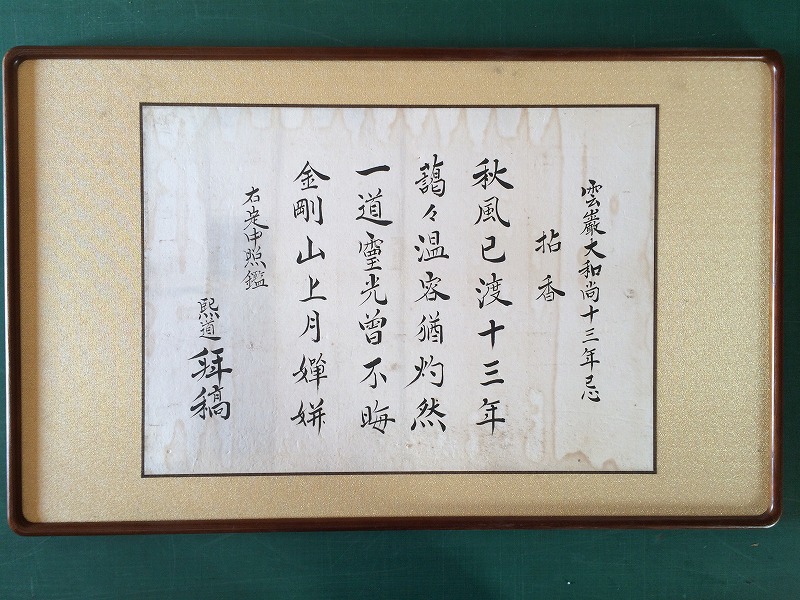 雲巖大和尚十三年忌
拈香
秋風已渡十三年
藹々温容猶灼然
一道霊光曽不晦
金剛山上月嬋妍
右走申照鑑
熙道拜稿